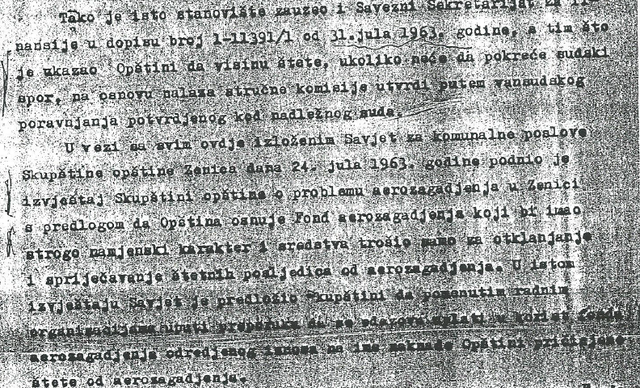 Tako je isto stanovište zauzeo i Savezni Sekretarijat za fi-
nansije u dopisu broj 1-11391/1 od 31.jula 1963. godine, a tim što
je ukazao Opštini da visinu štete, ukoliko neće da pokreće sudski
spor, na osnovu nalaza stručne komisije utvrdi putem vansudskog
poravnjanja potvrdjenog kod nadležnog suda.
U vezi sa svim ovdje izloženim Savjet za komunalne poslove
Skupštine opštine Zenica dana 24. jula 1963. godine podnio je
izvještaj Skupštini opštine o problemu aerozagadjenja u Zenici
s predlogom da Opština osnuje Fond aerozagadjenja koji bi imao
strogo namjenski karakter i sredstva trošio samo za otklanjanje
i spriječavanje štetnih posljedica od aerozagadjenja. U istom
izvještaju Savjet je predložio Skupštini da pomenutim radnim
organizacijama uputi preporuku da se uplati u korist fonda
aerozagadjenja odredjenog iznosa na ime naknade Opštini pričinjene
štete od aerozagadjenja.